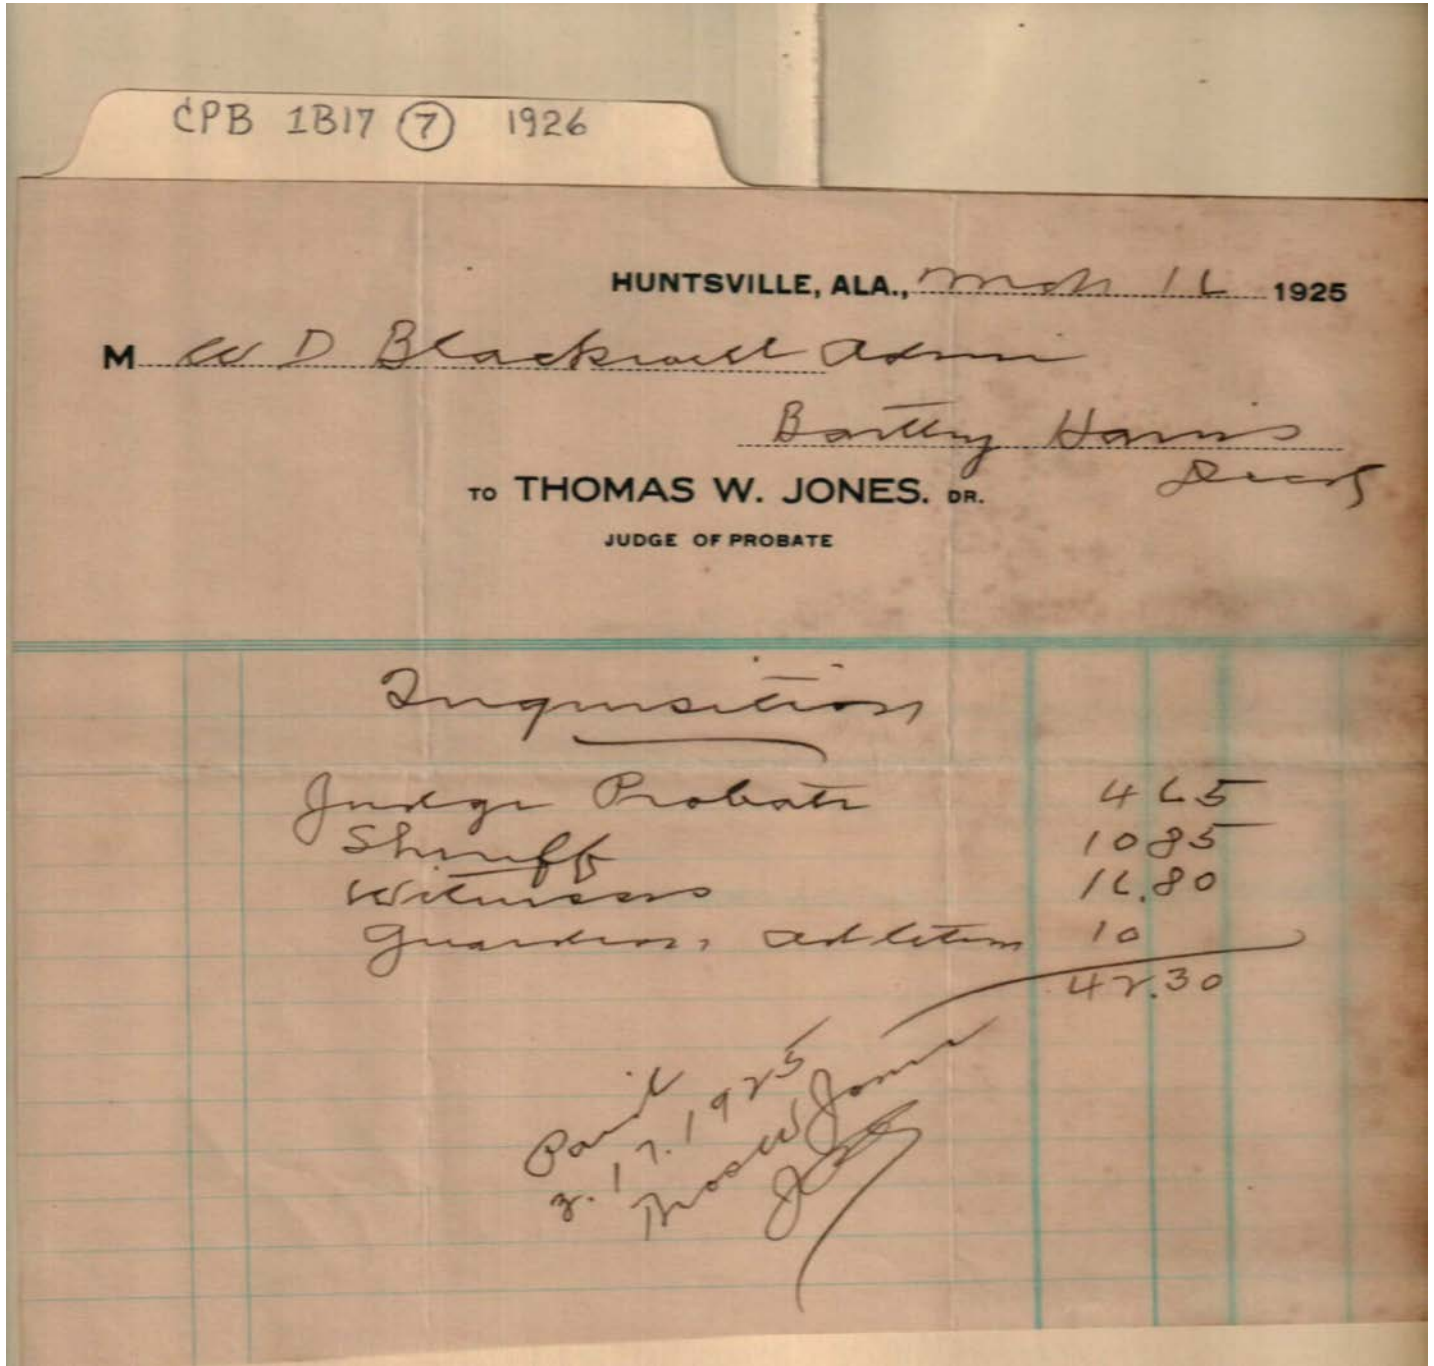 CPB 1B17 7 1926
HUNTSVILLE, ALA., Mch 16 1925
M W D Blackwell Admr
Bartley Harris
Decd
TO THOMAS W. JONES. DR.
JUDGE OF PROBATE
Inquisition
Judge Probate 4 65
Sheriff 10 85
Witnesses 16.80
Guardian, ad litem 10
42.30
Paid
3.17.1925
Thos W Jones